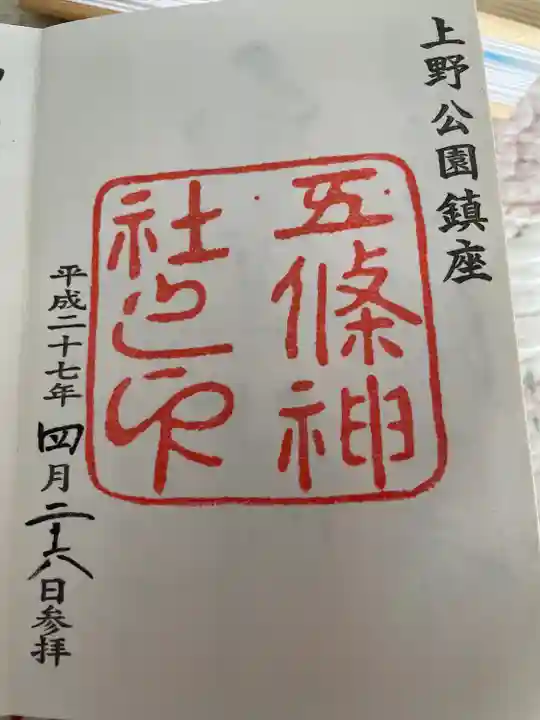 上野公園鎮座
五條神
社之印
平成二十七年四月二十八日参拝